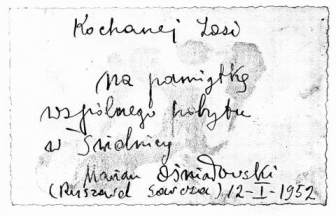 Kochanej Zosi
na pamiątkę
wspólnego pobytu
w Średnicy
Marian Ośniałowski
(Ryszard Sawcza) 12-I-1952